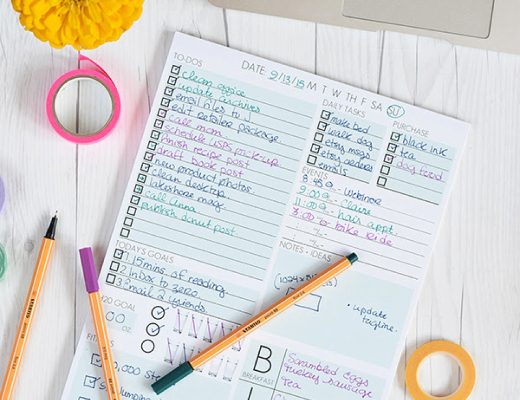 TO-DOS
DATE: 9/13/15 M T W TH F SA SU
clean office
update archives
email files to J
edit retailer package
call mom
schedule USPS pick-up
finish recipe post
draft book post
new product photos
clean desktop
lakeshore mag.
call Anna
publish donut post
DAILY TASKS
make bed
walk dog
etsy msgs
etsy orders
emails
PURCHASE
black ink
tea
dog food
EVENTS
webinar
9:00 a - Claire
11:00 a - hair appt.
3:00 - bike ride
NOTES + IDEAS
• update
tagline.
TODAY'S GOALS
1 15 mins of reading
2 InBox to zero
3 mail 2 friends
GOAL
OZ
FITNESS
B
BREAKFAST
Scrambled eggs
Turkey sausage
Tea
L